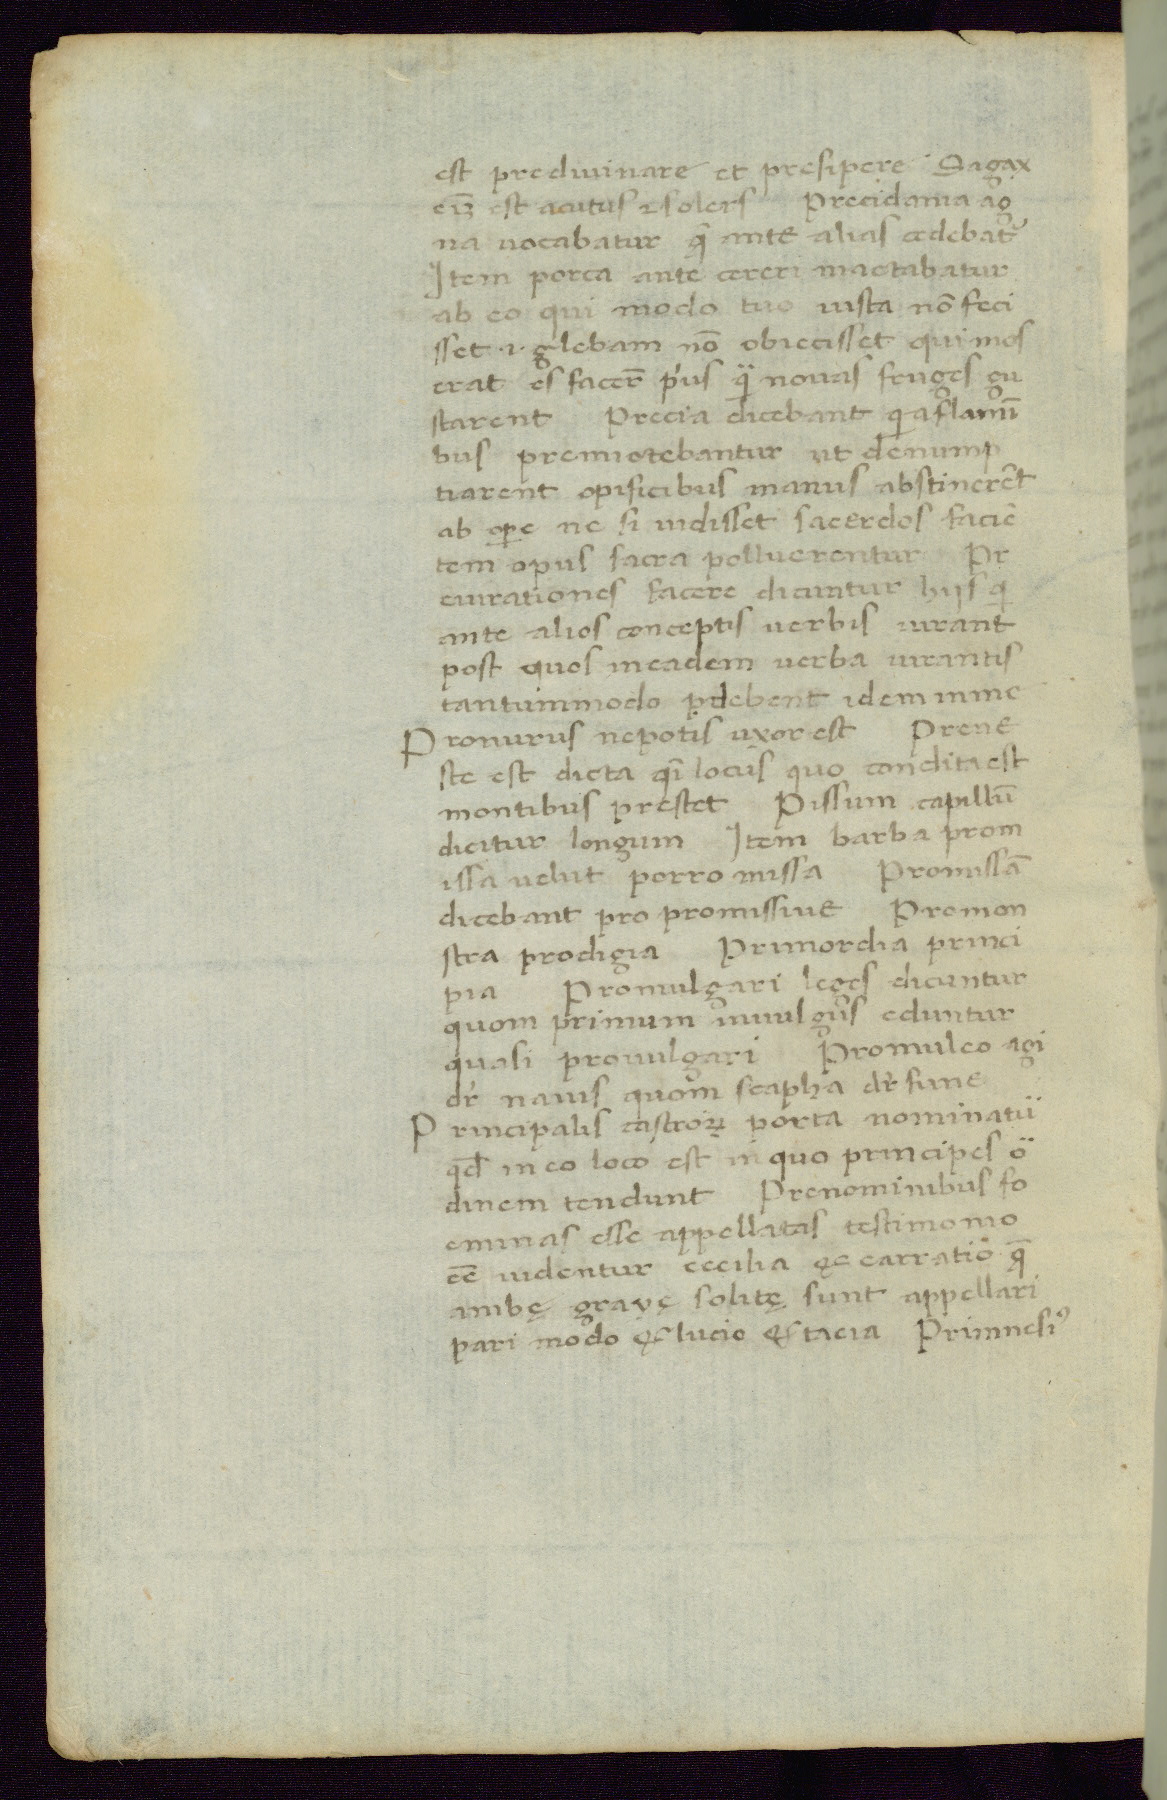 est prediuinare et presipere Sagax
eiꝫ est acutus ⁊ solers Precidania ag
na uocabatur q̄ ante alias cedebat᷑
Item porca ante cereri mactabatur
ab eo qui modo tuo iusta nō feci
sset ⁊ glebam nō obiecisset qui mos
erat eis facer̄ p'us q̈ nouas fruges gu
starent Precia dicebant qi a flamī
bus premictebantur ut denump
tiarent opificibus manus abstinerēt
ab oꝑe ne si uidisset sacerdos faciē
tem opus sacra polluerentur Pr
eiurationes facere dicuntur hijs qi
ante alios conceptis uerbis iurant
post quos in eadem uerba iurantis
tantummodo p̱debent idem in me
Pronurus nepotis uxor est Prene
ste est dicta qī locus quo condita est
montibus prestet Pissum capillū
dicitur longum Item barba prom
issa uelut porro missa Promissā
dicebant pro promissiue Promon
stra prodigia Primordia princi
pia Promulgari leges dicuntur
quom primum inuulgus eduntur
quasi prouulgari Promulco agi
dr̄ nauis quom scapha dr̄ fune
Principalis castroꝝ porta nominatū
qđ in eo loco est in quo principes ö
dinem tendunt Prenominibus fo
eminas esse appellatas testimonio
eē uidentur cecilia ęc carratio q̄
ambę gravę solitę sunt appellari
pari modo ęc lucio ęc tacia Primnesi⁹